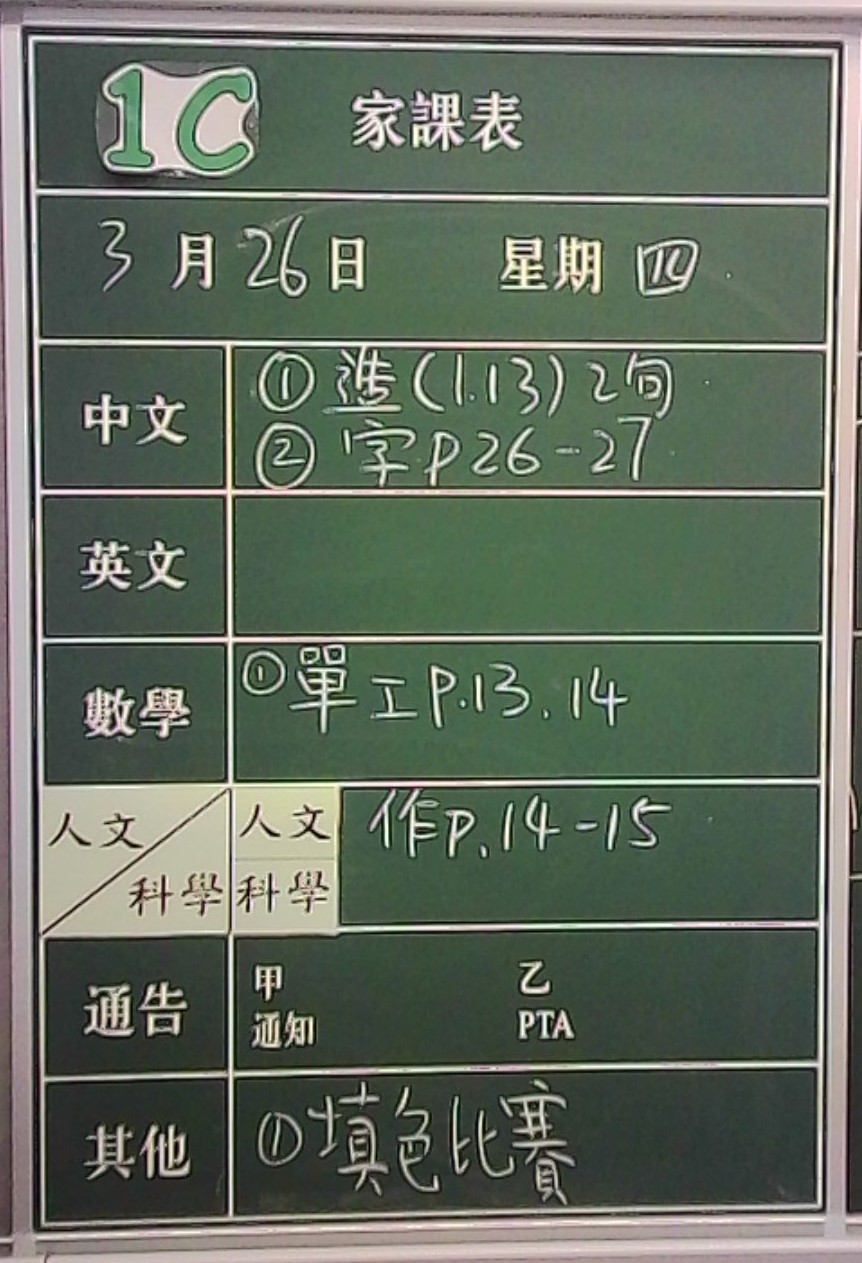 1C 家課表
3月26日 星期四
中文
① 造(1.13)2句
② 字P26-27
英文
數學
①單工P.13.14
人文/科學
人文
科學
作P.14-15
通告
甲 乙
通知 PTA
其他
①填色比賽